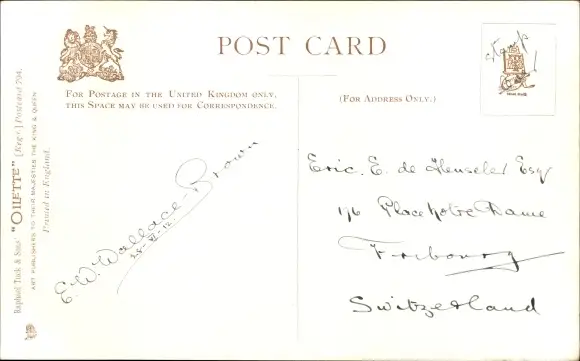 POST CARD
FOR POSTAGE IN THE UNITED KINGDOM ONLY,
THIS SPACE MAY BE USED FOR CORRESPONDENCE.
(FOR ADDRESS ONLY.)
stamp!
Raphael Tuck & Sons' "OILETTE" [Regd.] Postcard 794.
ART PUBLISHERS TO THEIR MAJESTIES THE KING & QUEEN.
Printed in England.
E. W. Wallace-Brown
28-XI-12
Eric. E. de Heuseler Esqr
176 Place Notre Dame
Fribourg
Switzerland